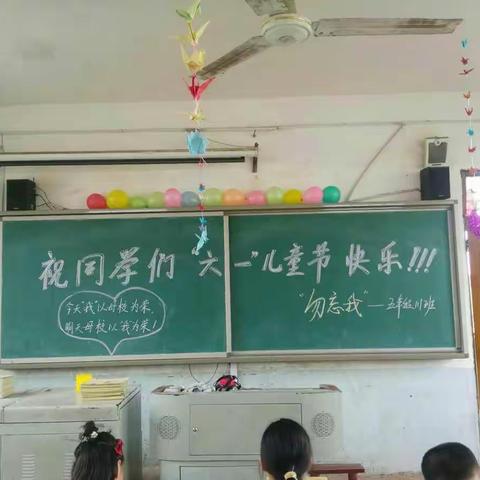 祝同学们"六一"儿童节快乐!!!
今天"我"以母校为荣,
明天母校以"我"为荣!
"勿忘我"—五年级(1)班